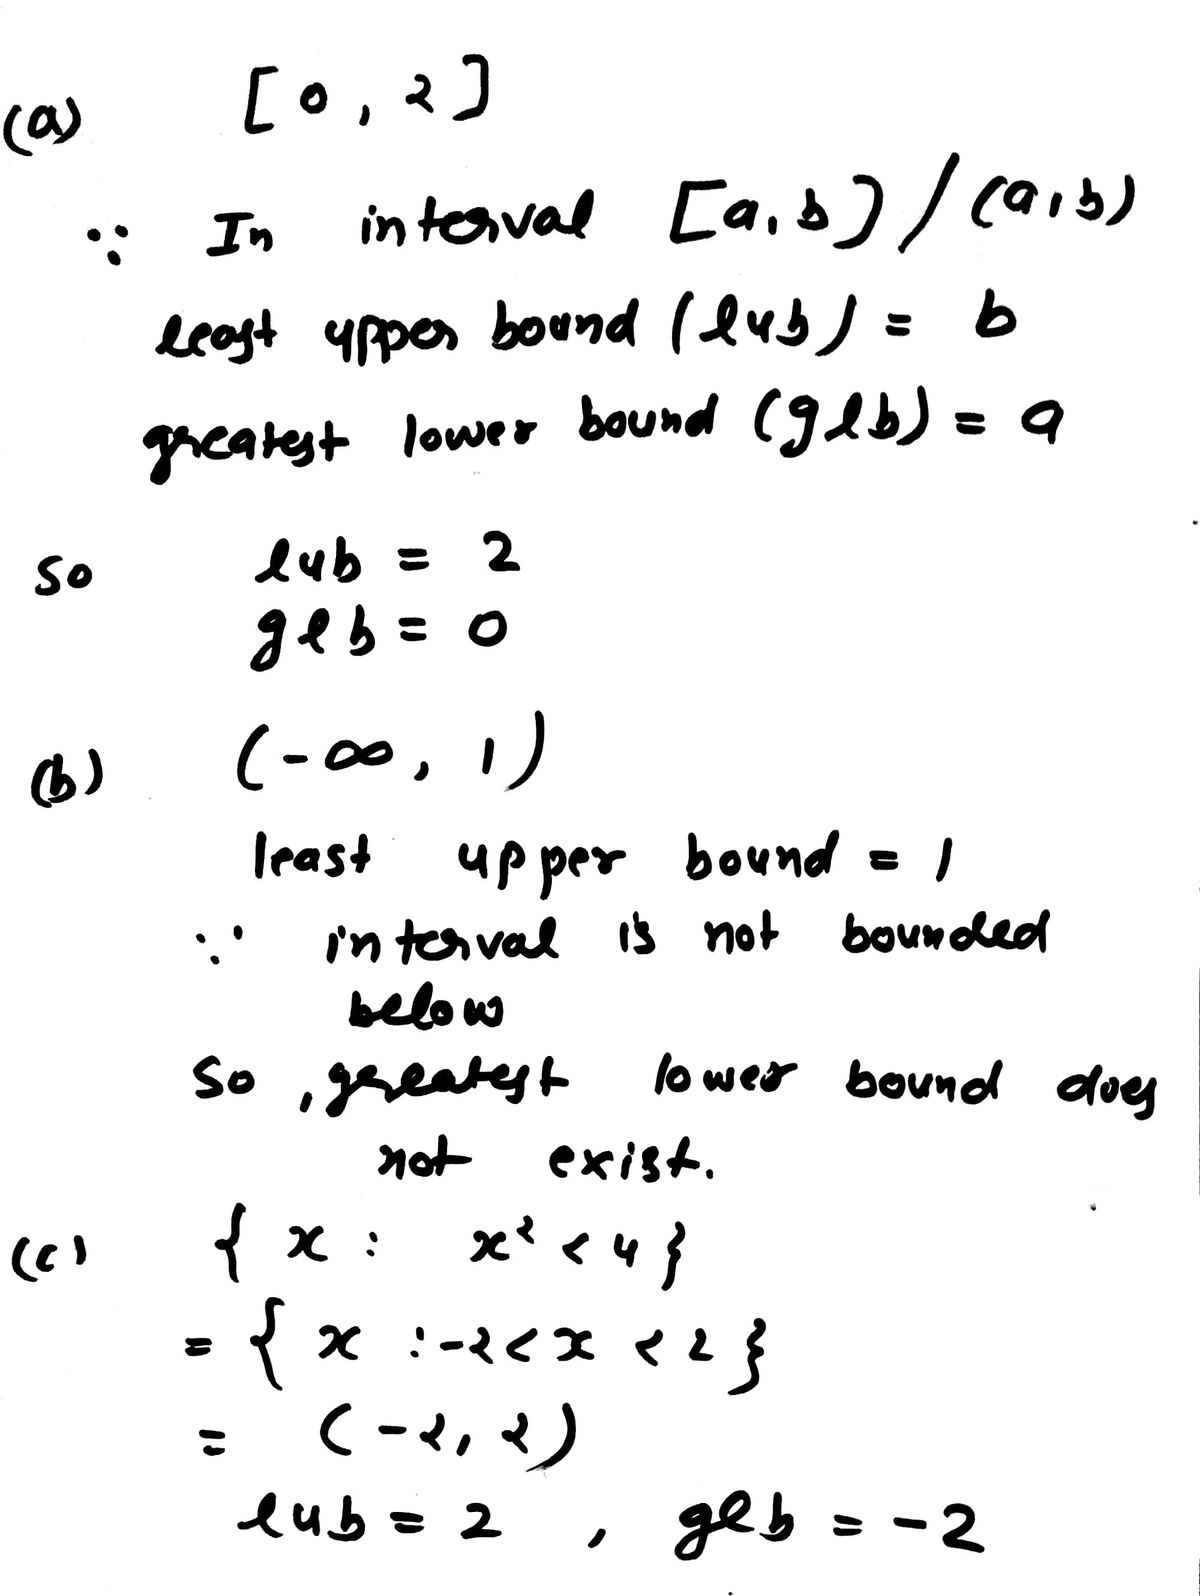 (a) [0, 2]
∵ In interval [a, b] / (a, b)
least upper bound (lub) = b
greatest lower bound (glb) = a
so lub = 2
glb = 0
(b) (-∞, 1)
least upper bound = 1
∵ interval is not bounded
below
So, greatest lower bound does
not exist.
(c) { x : x² < 4 }
= { x : -2 < x < 2 }
= (-2, 2)
lub = 2 , glb = -2